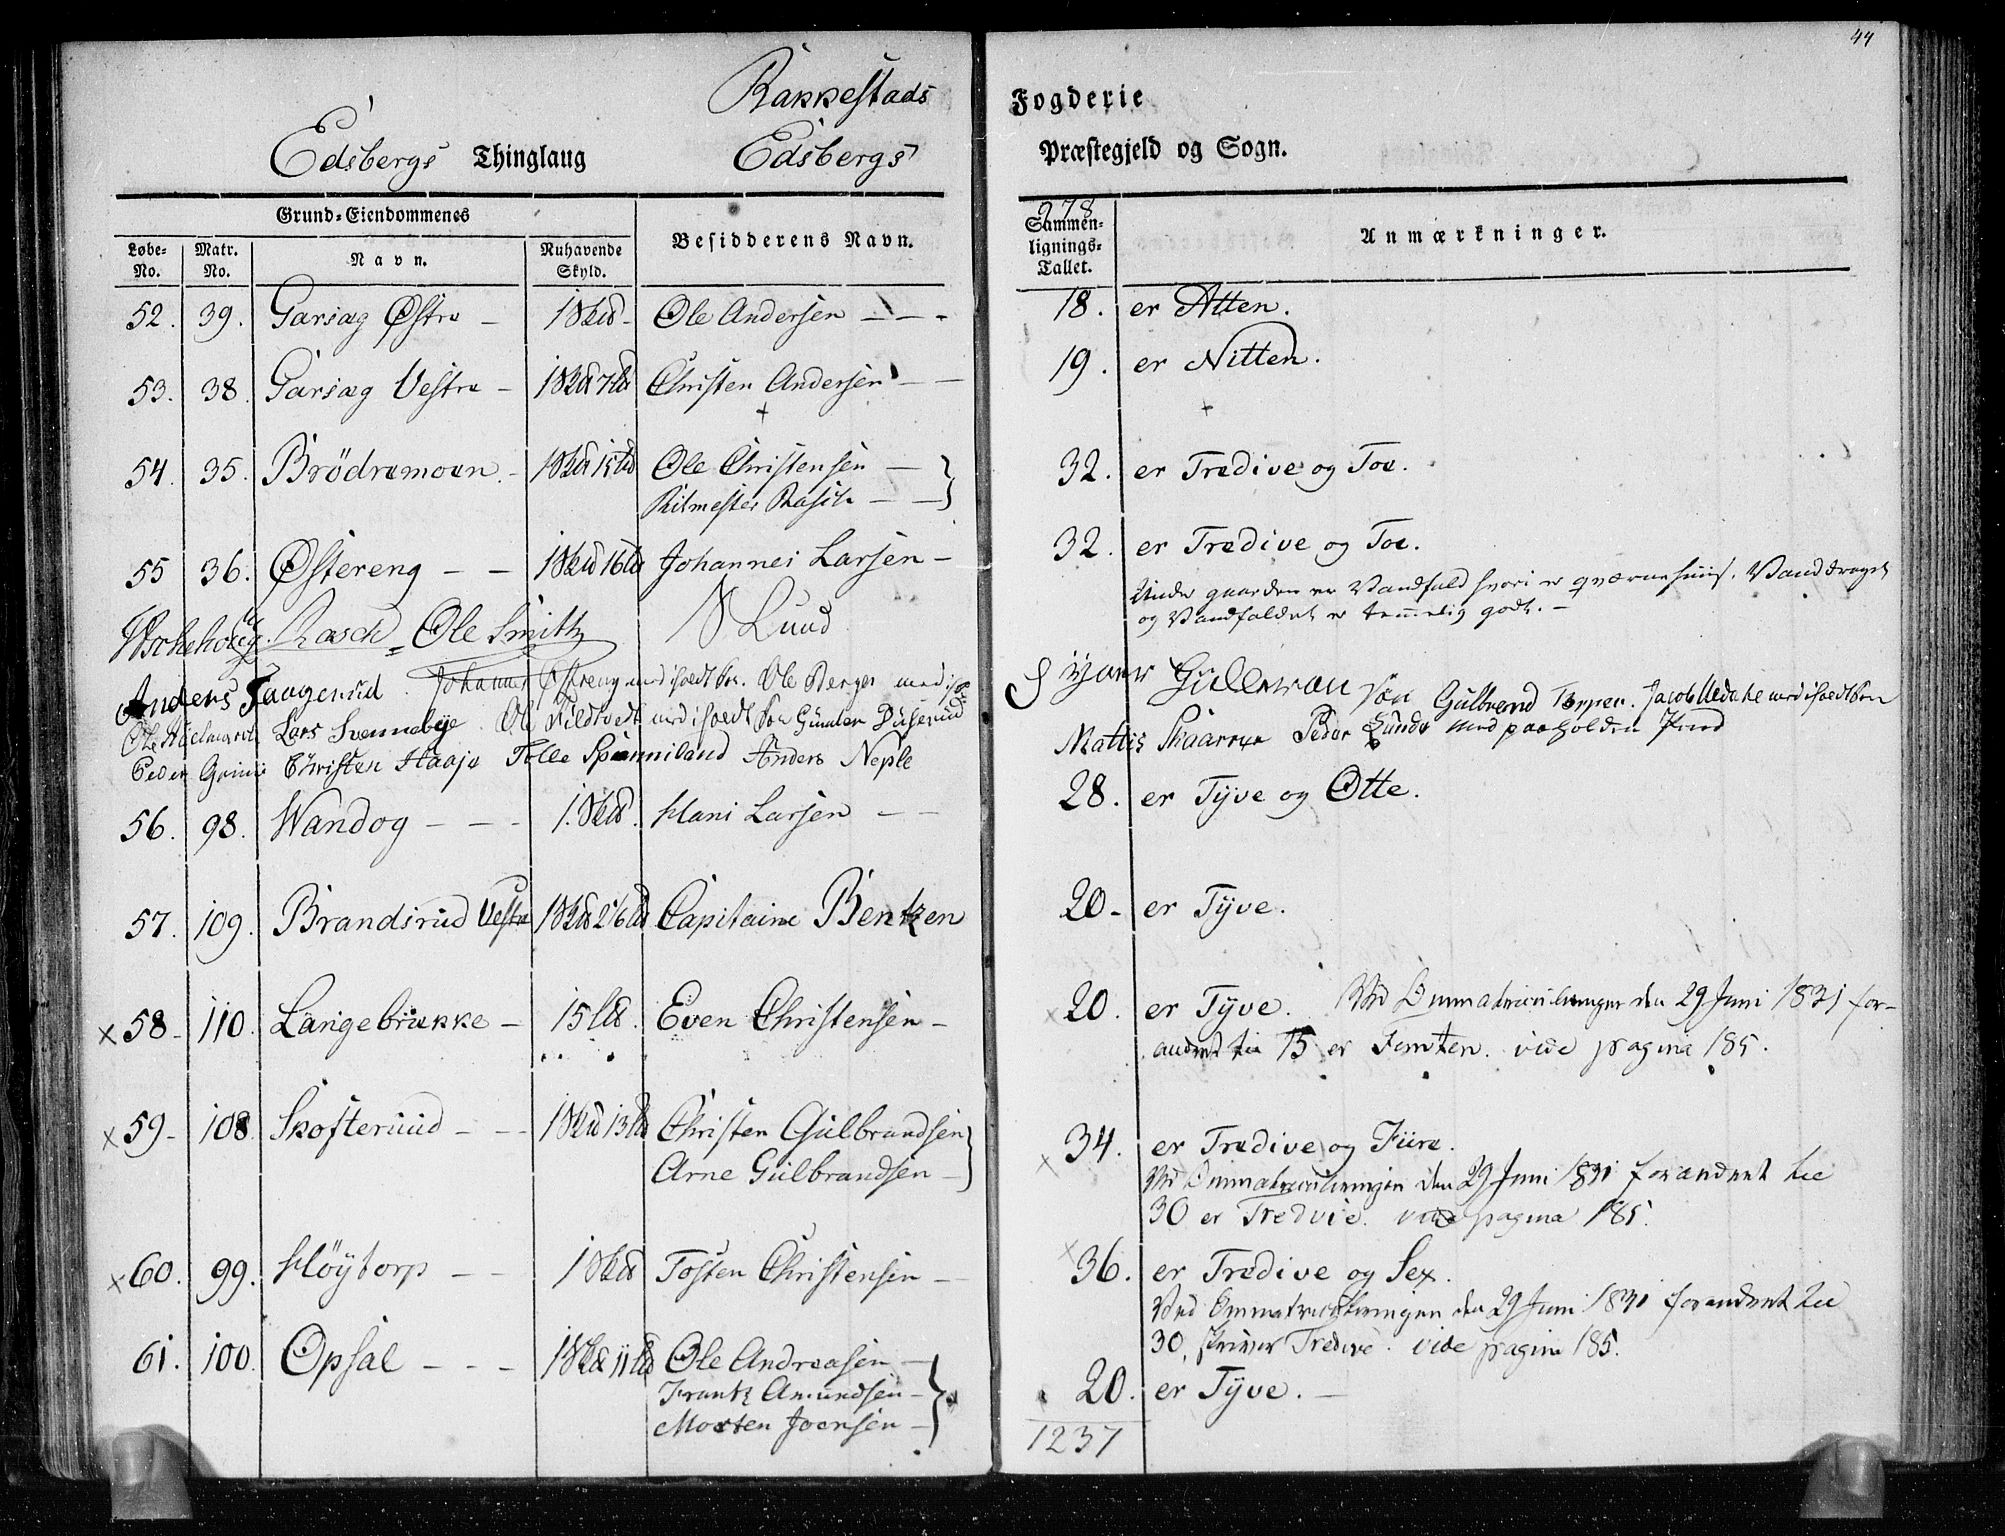 44
Rakkestads Fogderie
Edsbergs Thinglaug Edsbergs Præstegjeld og Sogn.
Grund-Eiendommenes
Løbe-No. Matr. No. Navn. Nuhavende Skyld. Besidderens Navn. Sammen-lignings-Tallet. Anmærkninger.
978
52. 39. Garsæg Østre – 1 Skd – Ole Andersen – – – 18. er Atten.
53. 38. Garsæg Vestre – 1 Skd 7 Ld Christen Andersen – – 19. er Nitten.
54. 35. Brödremoen – 1 Skd 15 Ld Ole Christensen – 32. er Tredive og Toe.
Ritmester Rasch – –
55 36. Østereng – – 1 Skd 16 Ld Johannes Larsen – 32. er Tredive og Toe.
Under gaarden er Vandfald hvori er qværnehuus. Vanddraget
og Vandfaldet er temmelig godt. –
Rasch Ole Smith Lund
Anders Johannes Østreng med iholdt Pen. Ole Berger
Lars Svenneby Ole med iholdt Pen Gunder
Peder Christen Haaje Tolle Spinniland Anders Neple
Gulbrand Torper. Jacob med iholdt Pen
Mattis Skaarer Peder Lunde med paaholden Pend
56. 98. Wandog – – – 1 Skd. Hans Larsen – – 28. er Tyve og Otte.
57. 109. Brandsrud Vestre 1 Skd 2 1/6 Ld Capitaine Bentzen 20 – er Tyve.
x 58 – 110. Langebrække – 15 Ld. Even Christensen – x 20. er Tyve. Ved Ommatriculeringen den 29 Juni 1831 for-
andret til 15 er Femten. vide pagina 185.
x 59 – 108. Skofterud – – 1 Skd 13 Ld Christen Gulbrandsen x 34. er Tredive og Fiire.
Arne Gulbrandsen –
Ved Ommatriculeringen den 29 Juni 1831 forandret til
30 er Tredvie. vide pagina 185.
x 60. 99. Höytorp – – 1 Skd Tosten Christensen – x 36. er Tredive og Sex.
Ved Ommatriculeringen den 29 Juni 1831 forandret til
30, skriver Tredive. vide pagina 185.
61. 100. Opsal – – – 1 Skd 11 Ld Ole Andreasen – 20. er Tyve. –
Frantz Amundsen –
Morten Joensen –
1237